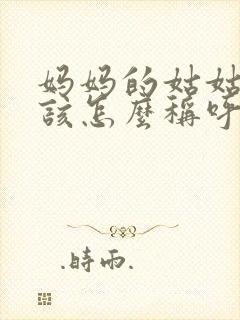 妈妈的姑姑
該怎麽稱呼
.時雨.